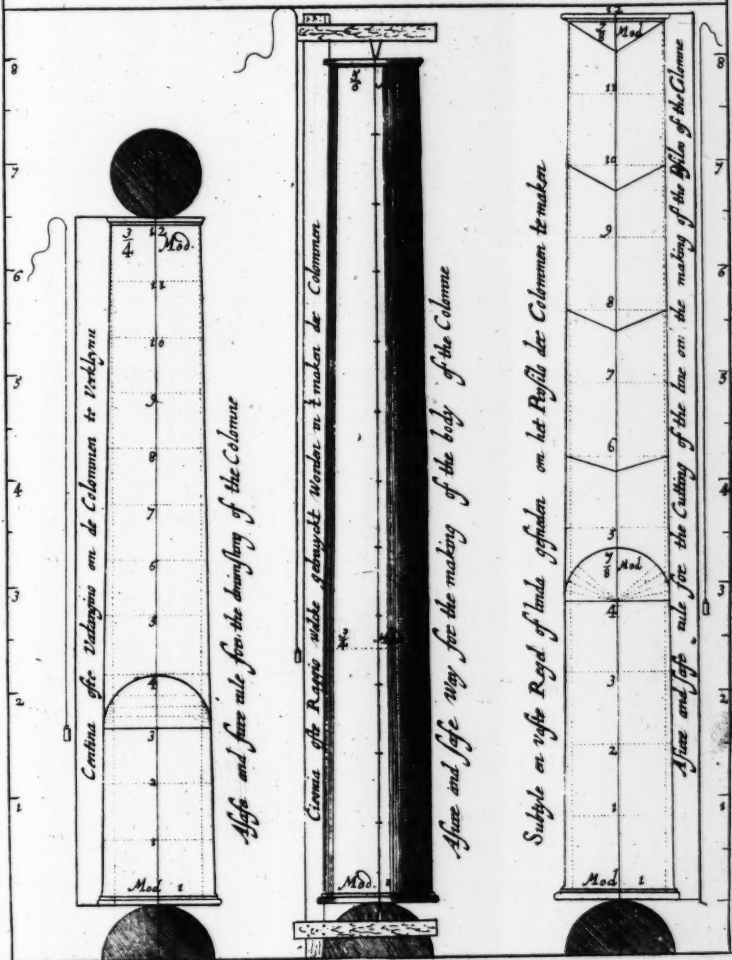 8
7
6
5
4
3
2
1
Centina ofte Vatangina om de Colommen te
3/4 12 Mod.
11
10
9
8
7
6
5
4
3
2
1
Mod 1
A safe and suere rule for the of the Colomne
ofte Raggio Welcke gebruyckt Worden in t maken der Colommen
Mod. 1
A suere and safe Way for the making of the body of the Colomne
Subtyle en vaste Regel of linda gesneden om het Profils der Colommen te maken
12
7/8 Mod
11
10
9
8
7
6
5
7/8 Mod
4
3
2
1
Mod 1
A suere and safe rule for the Cutting of the line on the making of the of the Colomne
8
7
6
5
4
3
2
1